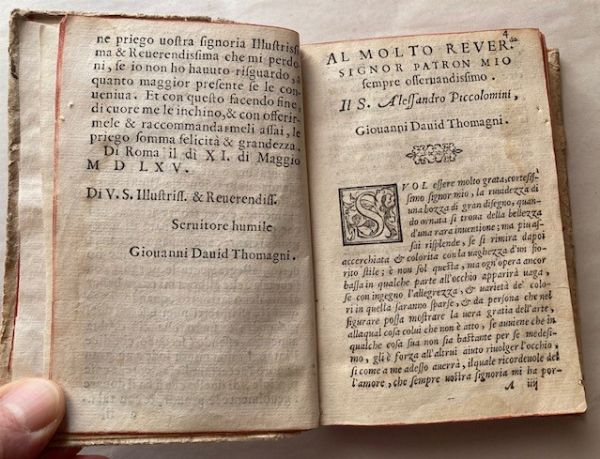 ne priego uostra signoria Illustriss
ma & Reuerendissima che mi perdo
ni, se io non ho hauuto risguardo, a
quanto maggior presente se le con-
ueniua. Et con questo facendo fine,
di cuore me le inchino, & con offerir-
mele & raccommandarmeli assai, le
priego somma felicità & grandezza.
Di Roma il dì XI. di Maggio
M D LXV.
Di V. S. Illustriss. & Reuerendiss.
Seruitore humile
Giouanni Dauid Thomagni.
4
AL MOLTO REVER.
SIGNOR PATRON MIO
sempre osseruandissimo.
Il S. Alessandro Piccolomini,
Giouanni Dauid Thomagni.
SVOL essere molto grata, cortesis-
simo signor mio, la ruuidezza di
una bozza di gran disegno, quan-
do ornata si troua della bellezza
d'una rara inuentione; ma più as-
sai risplende, se si rimira dapoi
accerchiata & colorita con la uaghezza d'un fio-
rito stile; è non sol questa, ma ogn'opera ancor
bassa in qualche parte all'occhio apparirà uaga,
se con ingegno l'allegrezza, & uarietà de' colo-
ri in quella saranno sparse, & da persona che nel
figurare possa mostrare la uera gratia dell'arte,
alla qual cosa colui che non è atto, se auuiene che in
qualche cosa sua non sia bastante per se medesi-
mo, gli è forza all'altrui aiuto riuolger l'occhio,
si come a me adesso auerrà, il quale ricordeuole del
l'amore, che sempre uostra signoria mi ha por-
A iiij